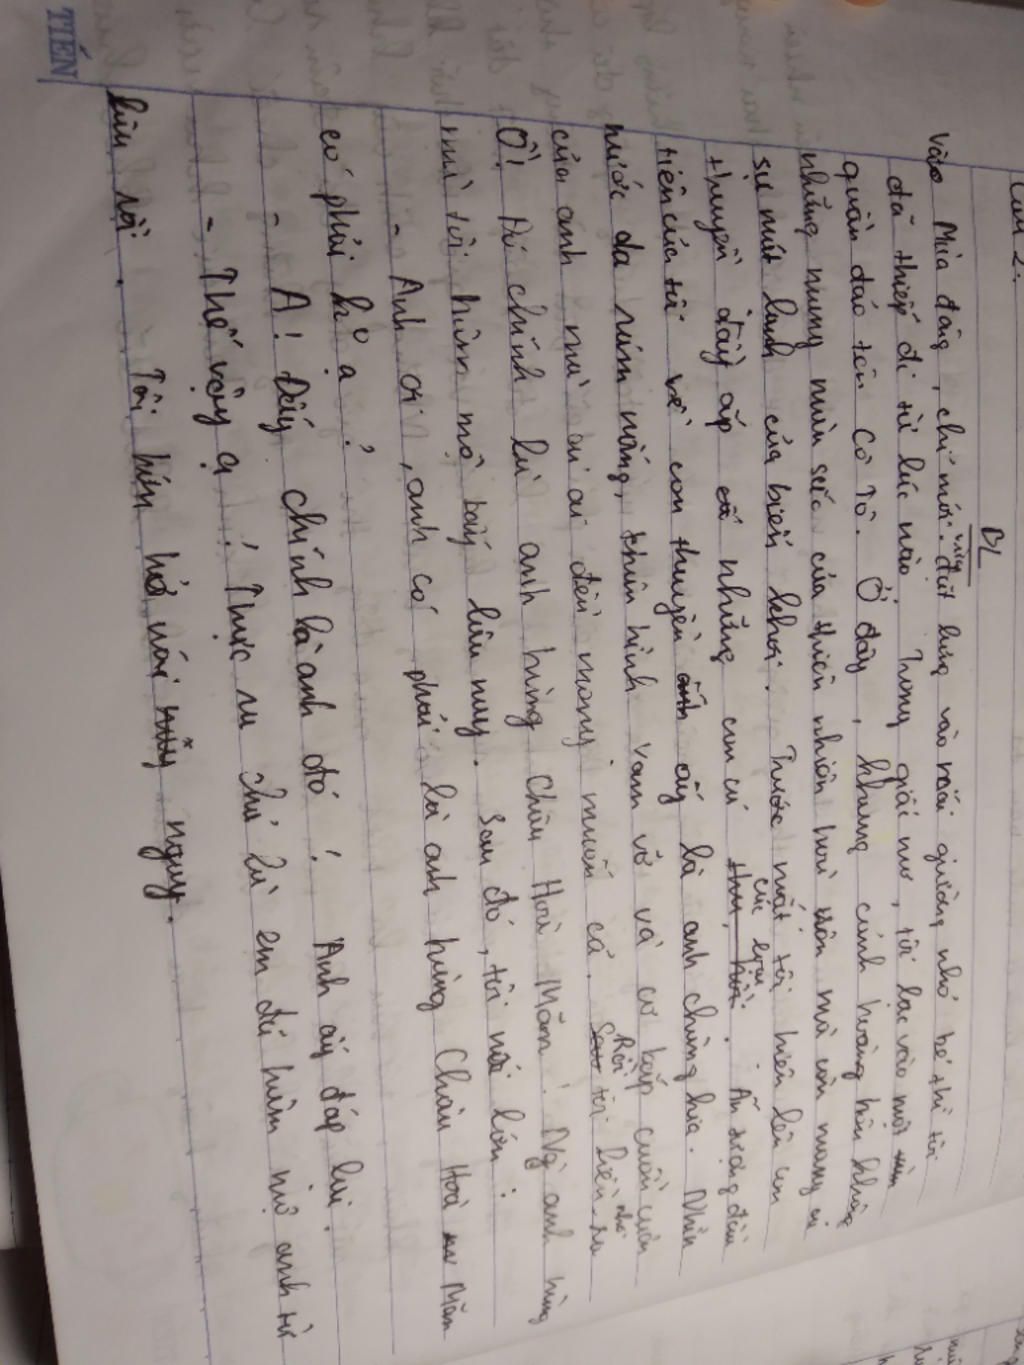 Câu 2:
BL
Vào Mùa đông, chỉ mới vừa đặt lưng vào cái giường nhỏ bé thì tôi
đã thiếp đi từ lúc nào. Trong giấc mơ, tôi lạc vào một
quần đảo tên Cô Tô. Ở đây, khung cảnh hoàng hôn không
những mang màu sắc của thiên nhiên mà còn mang vị
sự mát lành của biển khơi. Trước mặt tôi hiện lên con
thuyền đầy ắp những con cá các loại. Ấn tượng đầu
tiên của tôi về con thuyền ấy là anh chàng kia. Nhìn
nước da rám nắng, thân hình vạm vỡ và cơ bắp cuồn cuộn
của anh mà ai ai đều mong muốn cả. Rồi tôi liền nhớ ra
Ồ! Đó chính là anh hùng Châu Hoà Mãn! Người anh hùng
mà tôi hâm mộ bấy lâu nay. Sau đó, tôi nói lớn:
- Anh ơi, anh có phải là anh hùng Châu Hoà Mãn
có phải k° ạ?
- A! Đấy chính là anh đó! Anh ấy đáp lại.
- Thế vậy ạ! Thực ra chú là em đã hâm mộ anh từ
lâu rồi. Tôi hớn hở nói ngay.
TIẾN